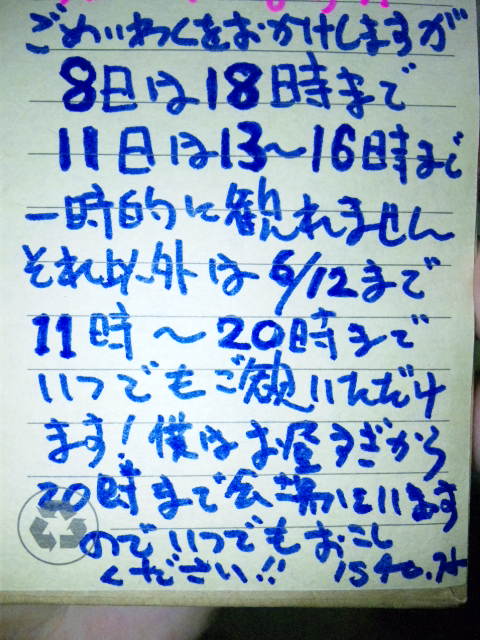 ごめいわくをおかけしますが
8日は18時まで
11日は13〜16時まで
一時的に観れません
それ以外は6/12まで
11時〜20時まで
いつでもご観いただけ
ます!僕はお昼すぎから
20時まで会場にいます
のでいつでもおこし
ください!!